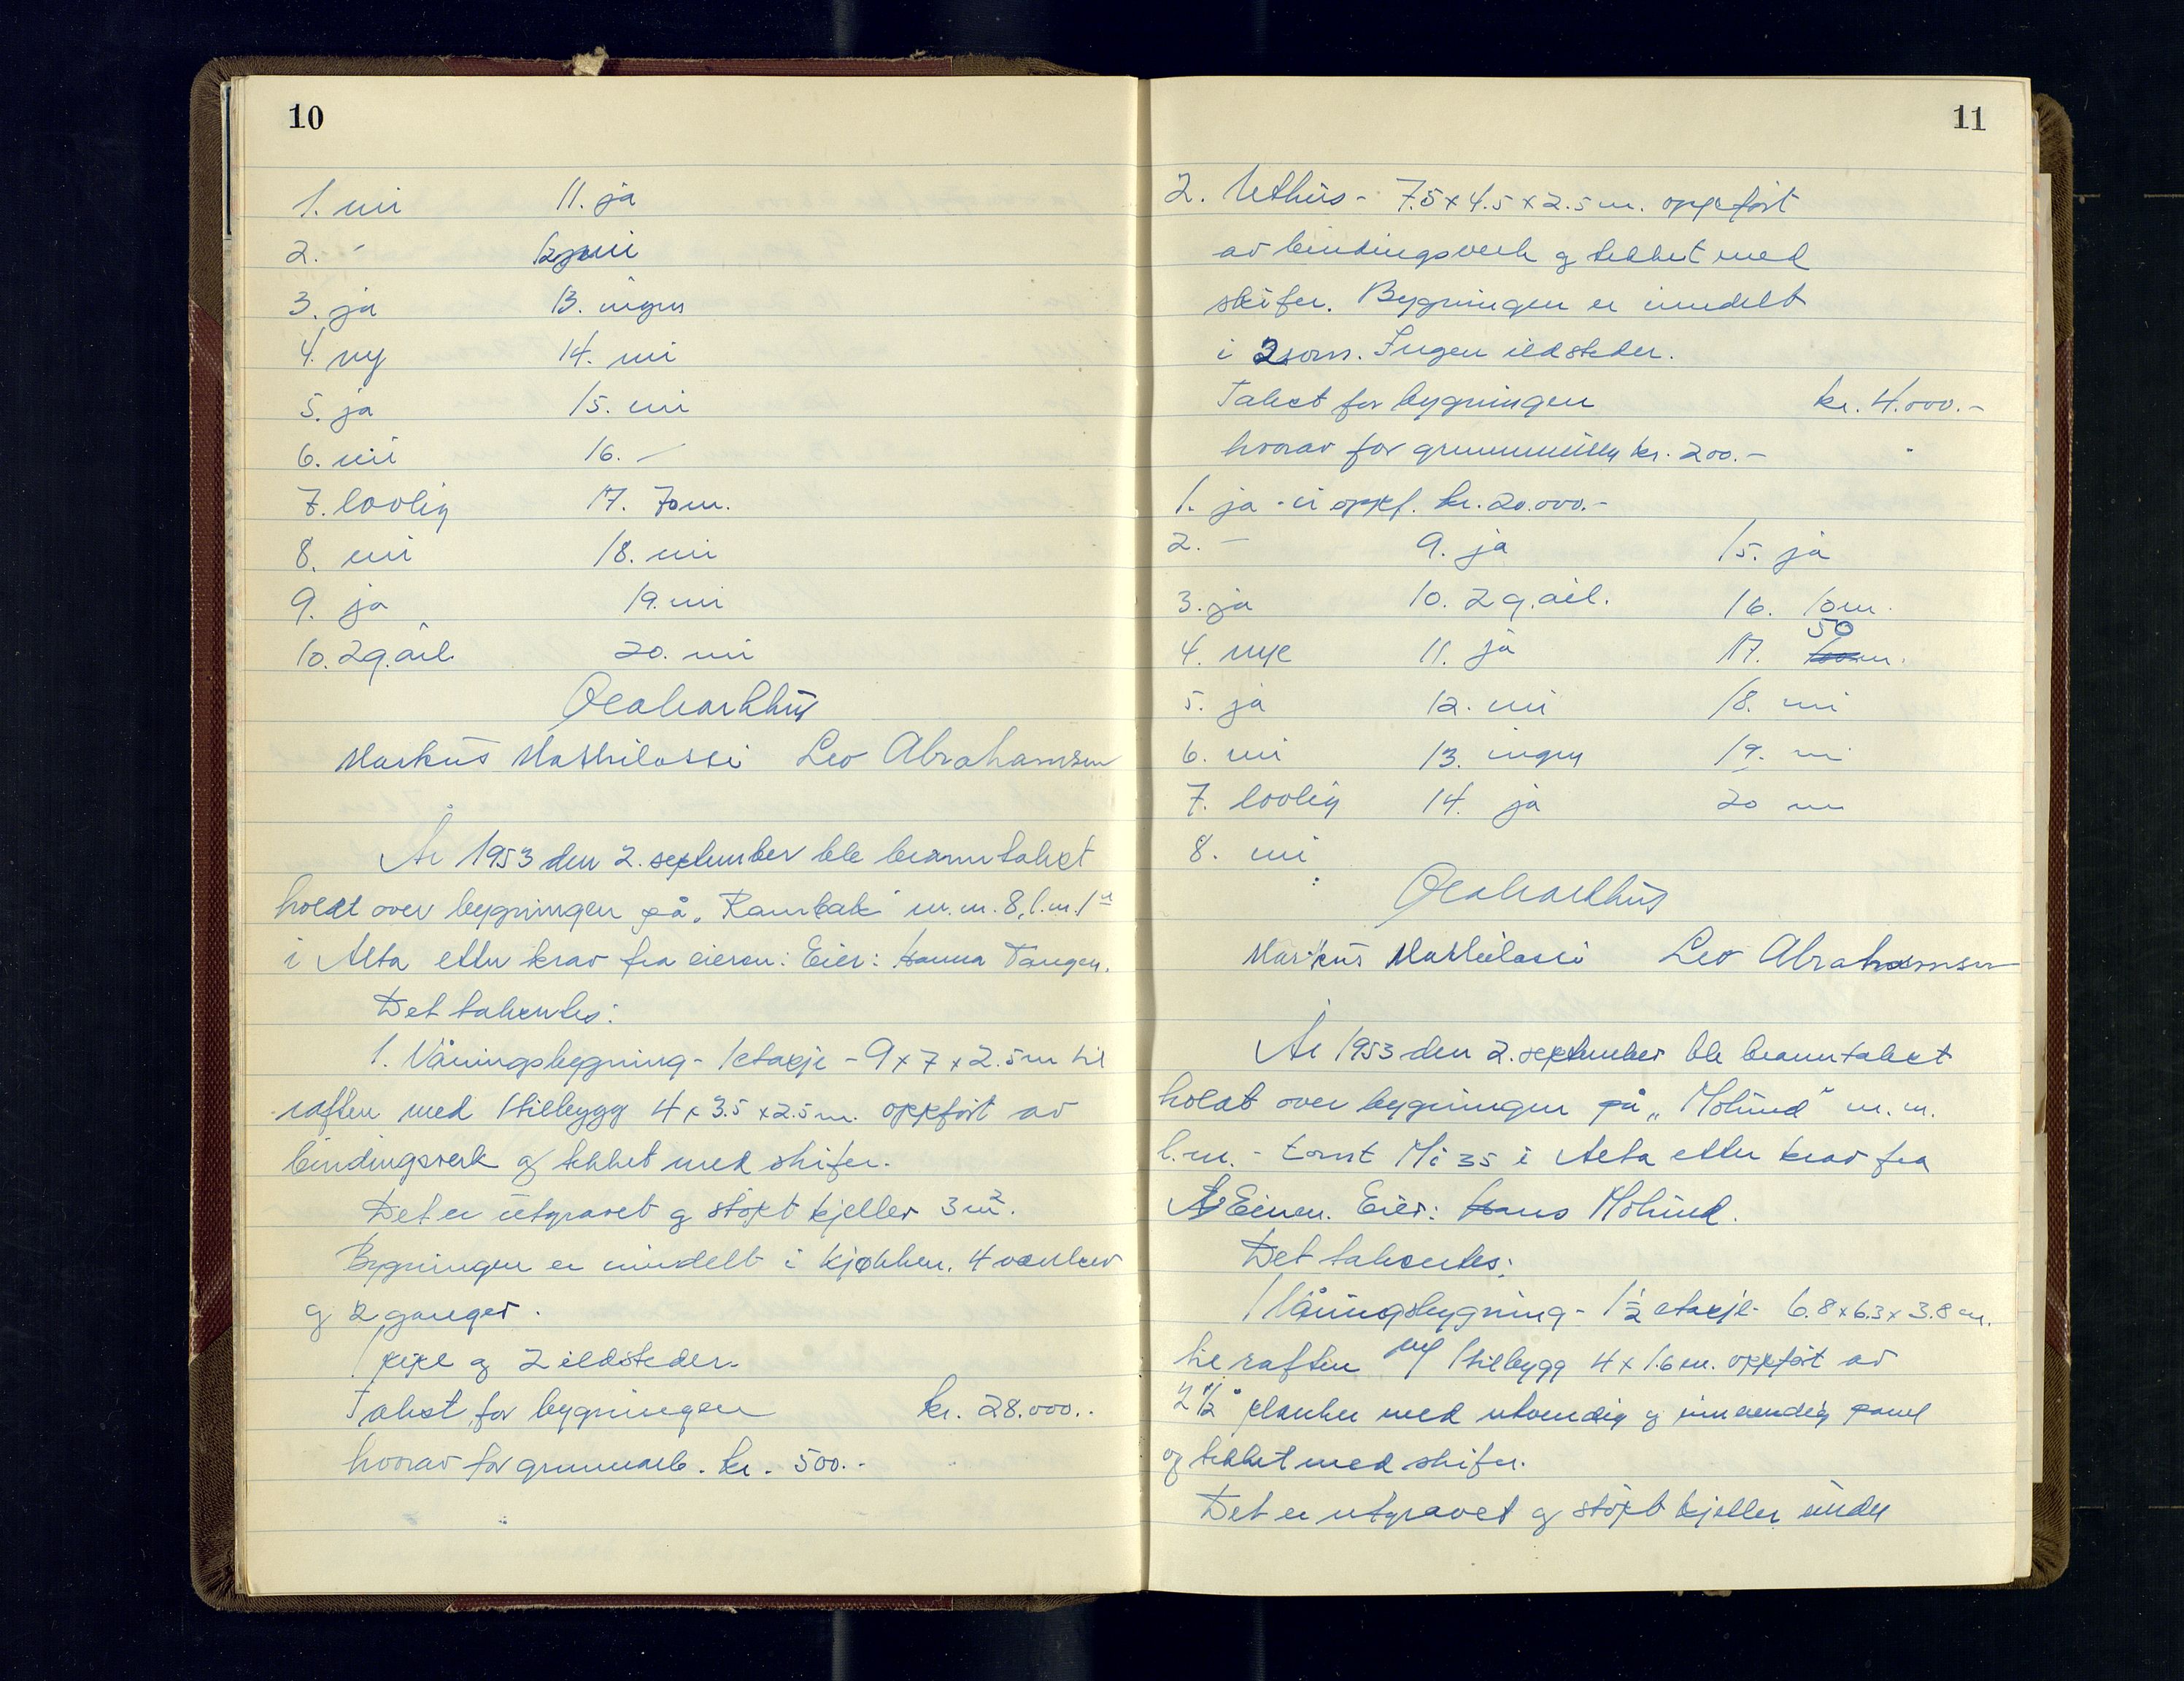 10
1. nei 11. ja
2. - 12. nei
3. ja 13. ingen
4. ny 14. nei
5. ja 15. nei
6. nei 16. -
7. lovlig 17. 70 m.
8. nei 18. nei
9. ja 19. nei
10. 2 g. årl. 20. nei
Markus Mathilassi Leo Abrahamsen
År 1953 den 2. september ble branntakst
holdt over bygningen på „Rambak" m.m. 8, l.m. 1
i Alta etter krav fra eieren: Eier: Hanna Tangen.
Det takseres:
1. Våningsbygning - 1 etasje - 9 x 7 x 2.5 m til
raften med 1 tilbygg 4 x 3.5 x 2.5 m. oppført av
bindingsverk og tekket med skifer.
Det er utgravet og støpt kjeller 3 m².
Bygningen er inndelt i kjøkken, 4 værelser
og 2 ganger.
1 pipe og 2 ildsteder.
Takst for bygningen kr. 28.000.-
hvorav for grunnarb. kr. 500.-
11
2. Uthus - 7.5 x 4.5 x 2.5 m. oppført
av bindingsverk og tekket med
skifer. Bygningen er inndelt
i 2 rom. Ingen ildsteder.
Takst for bygningen kr. 4.000.-
hvorav for grunnmuren kr. 200.-
1. ja - ei oppf. kr. 20.000.-
2. - 9. ja 15. ja
3. ja 10. 2 g. årl. 16. 10 m.
4. nye 11. ja 17. 50 m.
5. ja 12. nei 18. nei
6. nei 13. ingen 19. nei
7. lovlig 14. ja 20 nei
8. nei
Markus Mathilassi Leo Abrahamsen
År 1953 den 2. september ble branntakst
holdt over bygningen på „Molund" m.m.
l.m. - tomt Nr 35 i Alta etter krav fra
Eieren. Eier: Hans Molund.
Det takseres:
1 Våningsbygning - 1 ½ etasje - 6.8 x 6.3 x 3.8 m.
til raften m/ 1 tilbygg 4 x 1.6 m. oppført av
2 ½" planker med utvendig og innvendig panel
og tekket med skifer.
Det er utgravet og støpt kjeller under